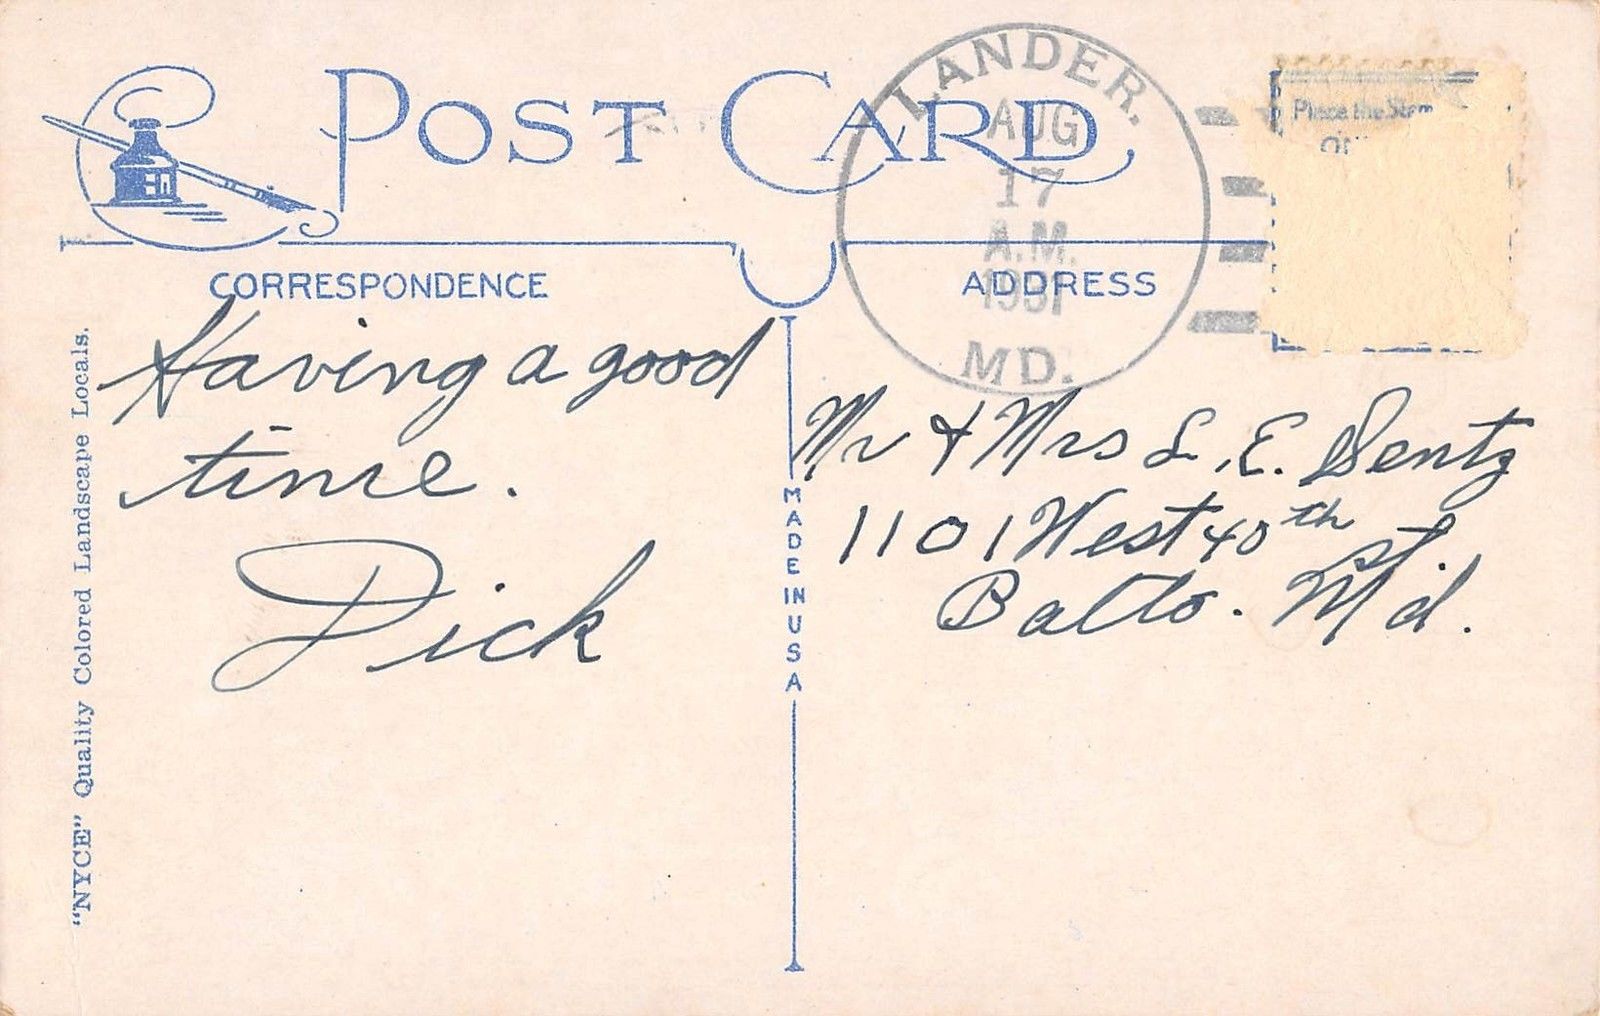 POST CARD
LANDER.
AUG
17
A.M.
MD.
Place the
CORRESPONDENCE
ADDRESS
Having a good
time.
Dick
Mr & Mrs L. E. Sentz
1101 West 40th St.
Balto. Md.
MADE IN USA
"NYCE" Quality Colored Landscape Locals.